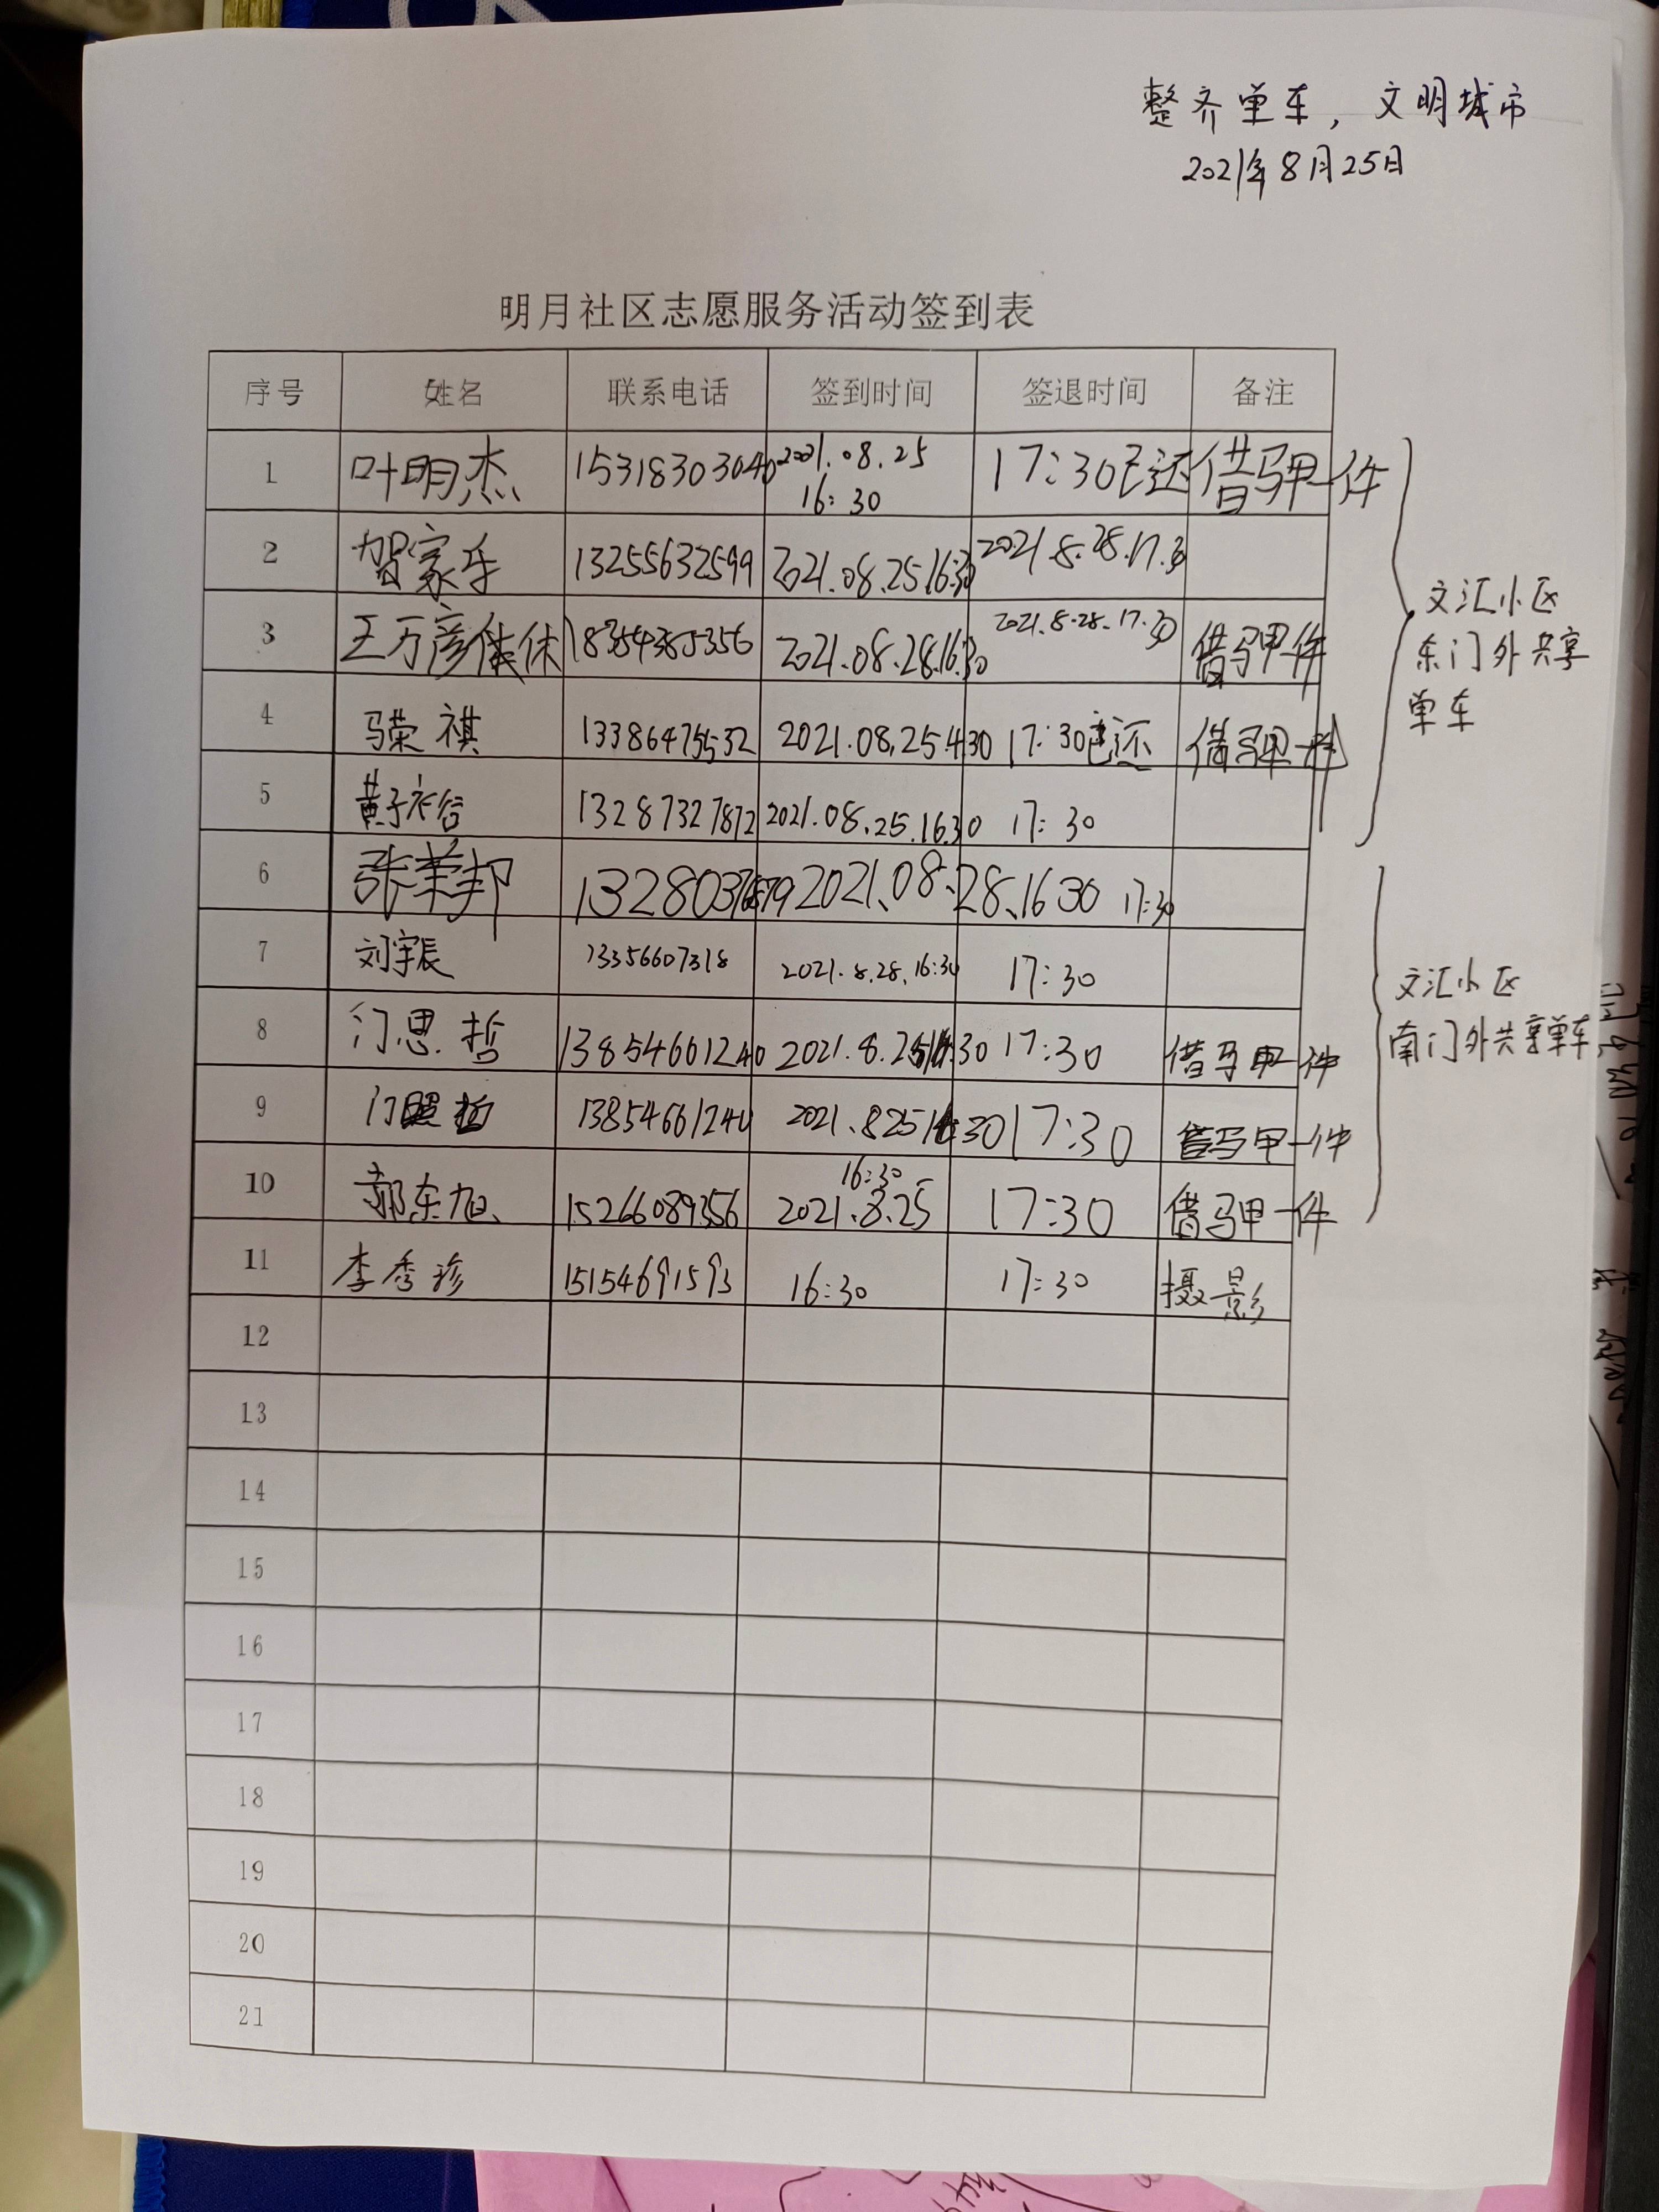 整齐单车，文明城市
2021年8月25日
明月社区志愿服务活动签到表
序号 姓名 联系电话 签到时间 签退时间 备注
1 叶明杰 15318303040 2021.08.25 16:30 17:30已还 借马甲一件
2 贺家乐 13255632599 2021.08.25.16:30 2021.8.28.17.30
3 王万彦 2021.08.28.16.30 2021.8.28.17.30 借马甲一件
4 马荣祺 2021.08.25 4:30 17:30已还 借马甲一件
5 13287327872 2021.08.25.16:30 17:30
6 张荣邦 2021.08.28.16 30 17:30
7 刘宇辰 13356607318 2021.8.28.16:30 17:30
8 门思哲 13854661240 2021.8.25 17:30 借马甲一件
9 13854661240 2021.8 25 17:30 借马甲一件
10 郝东旭 15266089356 16:30 2021.8.25 17:30 借马甲一件
11 李秀珍 15154691593 16:30 17:30 摄影
12
13
14
15
16
17
18
19
20
21
文汇小区
东门外共享
单车
文汇小区
南门外共享单车